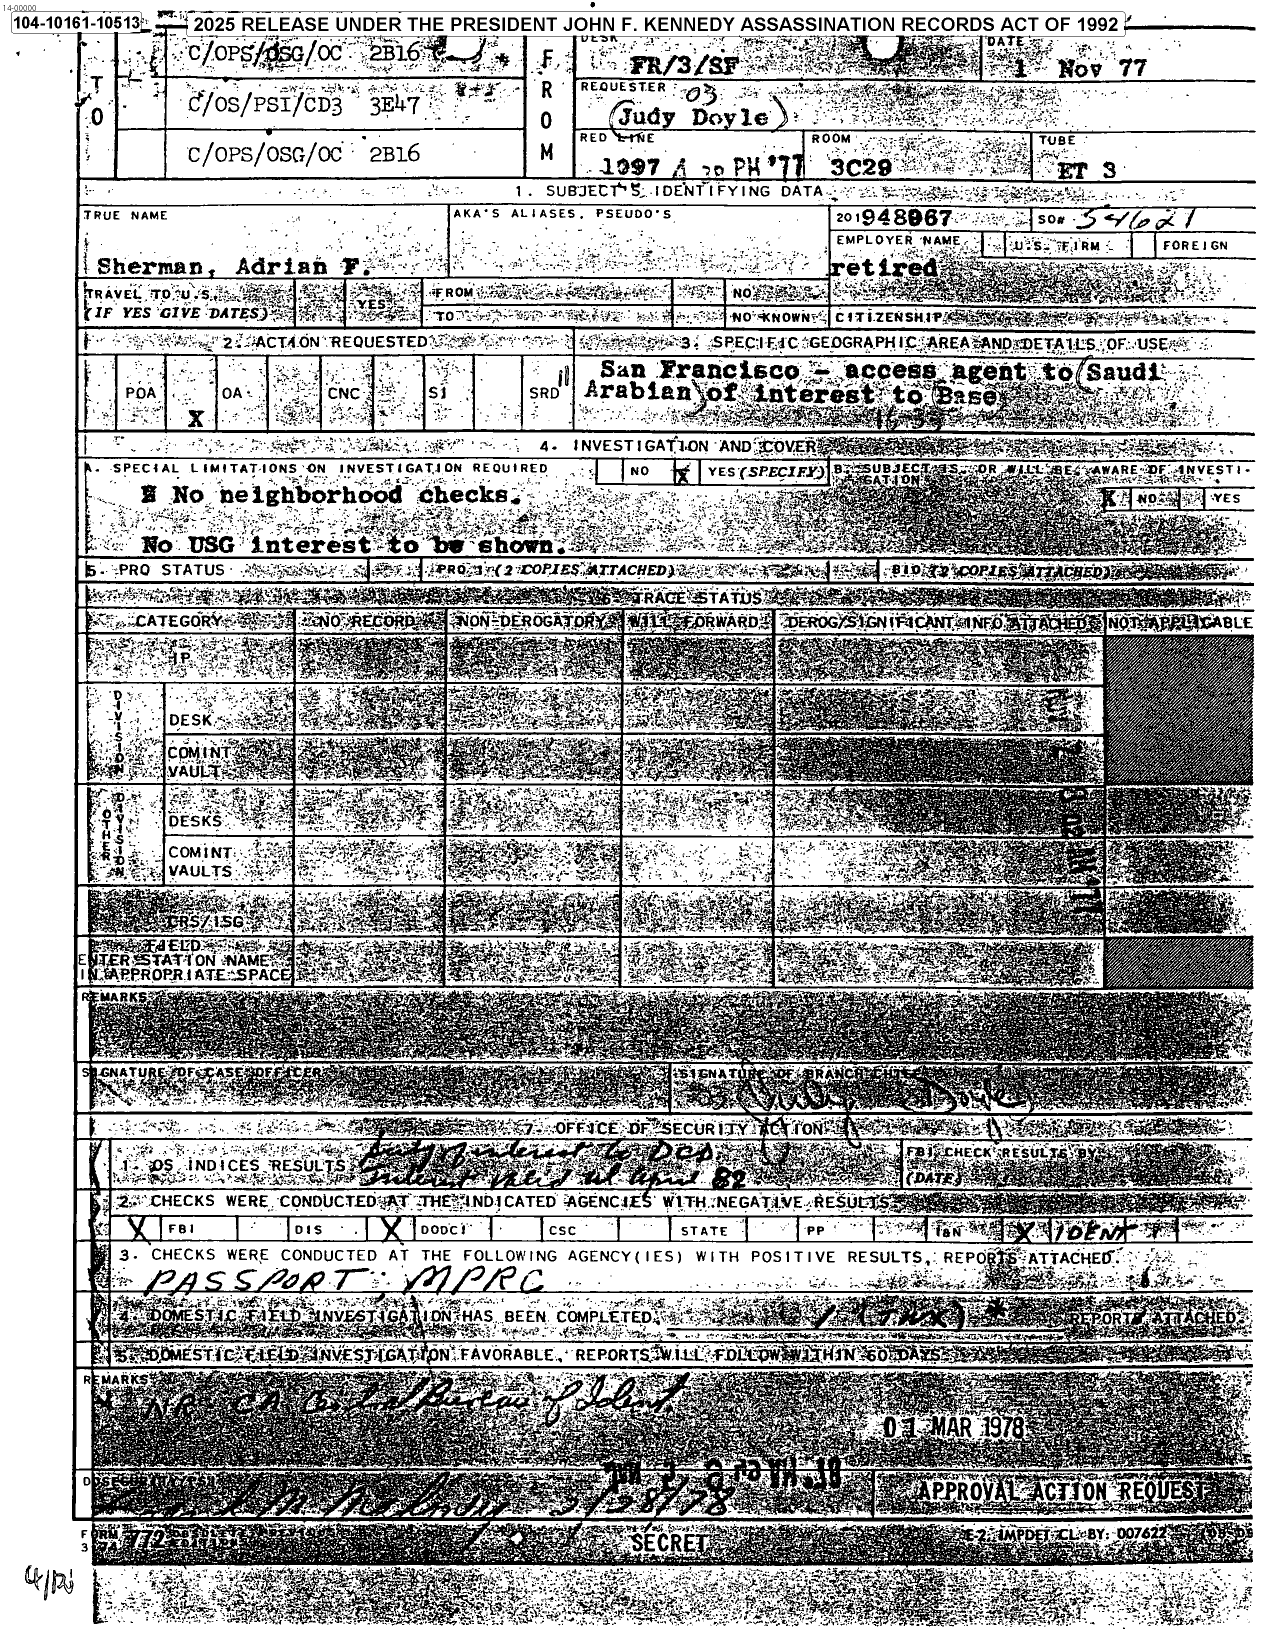 14-00000
104-10161-10513
2025 RELEASE UNDER THE PRESIDENT JOHN F. KENNEDY ASSASSINATION RECORDS ACT OF 1992
TO
C/OPS/OSG/OC 2B16
C/OS/PSI/CD3 3E47
C/OPS/OSG/OC 2B16
FROM
DESK
FR/3/SF
DATE
1 Nov 77
REQUESTER 03
(Judy Doyle)
RED LINE
1097
PH '77
ROOM
3C29
TUBE
ET 3
1. SUBJECT'S IDENTIFYING DATA
TRUE NAME
Sherman, Adrian F.
AKA'S ALIASES, PSEUDO'S
201 948067
SO# 54621
EMPLOYER NAME
U.S. FIRM
FOREIGN
retired
TRAVEL TO U.S.
(IF YES GIVE DATES)
YES
FROM
TO
NO
NO KNOWN
CITIZENSHIP
2. ACTION REQUESTED
POA
X
OA
CNC
SI
SRD
3. SPECIFIC GEOGRAPHIC AREA AND DETAILS OF USE
San Francisco - access agent to (Saudi
Arabian) of interest to Base
4. INVESTIGATION AND COVER
A. SPECIAL LIMITATIONS ON INVESTIGATION REQUIRED
NO
X YES (SPECIFY)
No neighborhood checks.
No USG interest to be shown.
B. SUBJECT IS, OR WILL BE, AWARE OF INVESTI-
GATION
X NO
YES
5. PRO STATUS
PRO 1 (2 COPIES ATTACHED)
BIO (2 COPIES ATTACHED)
6. TRACE STATUS
CATEGORY
NO RECORD
NON-DEROGATORY
WILL FORWARD
DEROG/SIGNIFICANT INFO ATTACHED
NOT APPLICABLE
IP
DIVISION
DESK
COMINT
VAULT
OTHER DIVISION
DESKS
COMINT
VAULTS
CRS/ISG
FIELD
ENTER STATION NAME
IN APPROPRIATE SPACE
REMARKS
SIGNATURE OF CASE OFFICER
SIGNATURE OF BRANCH CHIEF
Judy Doyle
7. OFFICE OF SECURITY ACTION
1. OS INDICES RESULTS
Subj of interest to DCD.
Interest valid til April 82
FBI CHECK RESULTS BY
(DATE)
2. CHECKS WERE CONDUCTED AT THE INDICATED AGENCIES WITH NEGATIVE RESULTS
X FBI
DIS
X DODCI
CSC
STATE
PP
I&N
X IDENT
3. CHECKS WERE CONDUCTED AT THE FOLLOWING AGENCY(IES) WITH POSITIVE RESULTS, REPORTS ATTACHED.
PASSPORT; MPRC
4. DOMESTIC FIELD INVESTIGATION HAS BEEN COMPLETED.
1 (TWX) *
REPORTS ATTACHED.
5. DOMESTIC FIELD INVESTIGATION FAVORABLE, REPORTS WILL FOLLOW WITHIN 60 DAYS
REMARKS
* NR CA Central Bureau of Ident
01 MAR 1978
2/28/78
APPROVAL ACTION REQUEST
FORM 772
SECRET
E-2, IMPDET CL. BY: 007622